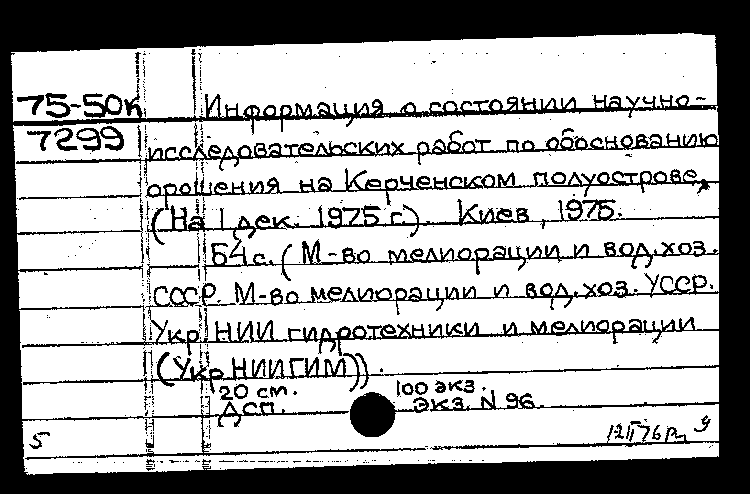 75-50к Информация о состоянии научно-
7299 исследовательских работ по обоснованию
орошения на Керченском полуострове.
(На 1 дек. 1975 г.). Киев, 1975.
54 с. (М-во мелиорации и вод.хоз.
СССР. М-во мелиорации и вод.хоз. УССР.
Укр НИИ гидротехники и мелиорации
(Укр НИИГИМ)).
20 см. 100 экз.
ДСП. Экз. N 96.
5 12 II 76 9